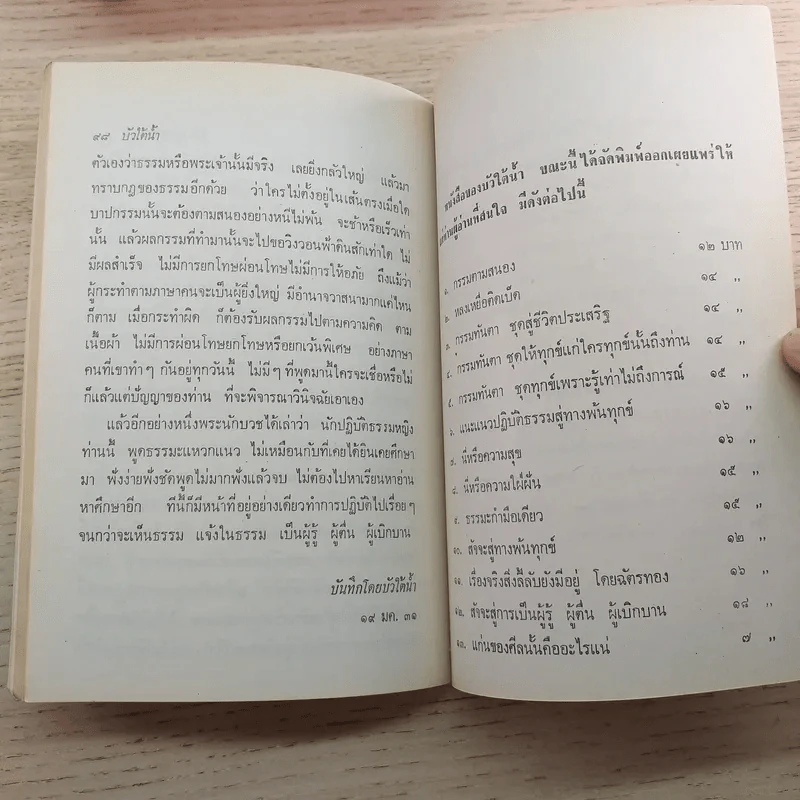 ๙๘ บัวใต้น้ำ
ตัวเองว่าธรรมหรือพระเจ้านั้นมีจริง เลยยิ่งกลัวใหญ่ แล้วมา
ทราบกฎของธรรมอีกด้วย ว่าใครไม่ตั้งอยู่ในเส้นตรงเมื่อใด
บาปกรรมนั้นจะต้องตามสนองอย่างหนีไม่พ้น จะช้าหรือเร็วเท่า
นั้น แล้วผลกรรมที่ทำมานั้นจะไปขอวิงวอนฟ้าดินสักเท่าใด ไม่
มีผลสำเร็จ ไม่มีการยกโทษผ่อนโทษไม่มีการให้อภัย ถึงแม้ว่า
ผู้กระทำตามภาษาคนจะเป็นผู้ยิ่งใหญ่ มีอำนาจวาสนามากแค่ไหน
ก็ตาม เมื่อกระทำผิด ก็ต้องรับผลกรรมไปตามความคิด ตาม
เนื้อผ้า ไม่มีการผ่อนโทษยกโทษหรือยกเว้นพิเศษ อย่างภาษา
คนที่เขาทำๆ กันอยู่ทุกวันนี้ ไม่มีๆ ที่พูดมานี้ใครจะเชื่อหรือไม่
ก็แล้วแต่ปัญญาของท่าน ที่จะพิจารณาวินิจฉัยเอาเอง
แล้วอีกอย่างหนึ่งพระนักบวชได้เล่าว่า นักปฏิบัติธรรมหญิง
ท่านนี้ พูดธรรมะแหวกแนว ไม่เหมือนกับที่เคยได้ยินเคยศึกษา
มา ฟังง่ายฟังชัดพูดไม่มากฟังแล้วจบ ไม่ต้องไปหาเรียนหาอ่าน
หาศึกษาอีก ทีนี้ก็มีหน้าที่อยู่อย่างเดียวทำการปฏิบัติไปเรื่อยๆ
จนกว่าจะเห็นธรรม แจ้งในธรรม เป็นผู้รู้ ผู้ตื่น ผู้เบิกบาน
บันทึกโดยบัวใต้น้ำ
๑๙ มค. ๓๑
หนังสือของบัวใต้น้ำ ขณะนี้ได้จัดพิมพ์ออกเผยแพร่ให้
แก่ท่านผู้อ่านที่สนใจ มีดังต่อไปนี้
๑. กรรมตามสนอง ๑๒ บาท
๒. หลงเหยื่อคิดเบ็ด ๑๔ ,,
๓. กรรมทันตา ชุดสู่ชีวิตประเสริฐ ๑๔ ,,
๔. กรรมทันตา ชุดให้ทุกข์แก่ใครทุกข์นั้นถึงท่าน ๑๔ ,,
๕. กรรมทันตา ชุดทุกข์เพราะรู้เท่าไม่ถึงการณ์ ๑๕ ,,
๖. แนะแนวปฏิบัติธรรมสู่ทางพ้นทุกข์ ๑๖ ,,
๗. นี่หรือความสุข ๑๖ ,,
๘. นี่หรือความใฝ่ฝัน ๑๕ ,,
๙. ธรรมะกำมือเดียว ๑๕ ,,
๑๐. สัจจะสู่ทางพ้นทุกข์ ๑๒ ,,
๑๑. เรื่องจริงสิ่งลี้ลับยังมีอยู่ โดยฉัตรทอง ๑๖ ,,
๑๒. สัจจะสู่การเป็นผู้รู้ ผู้ตื่น ผู้เบิกบาน ๑๘ ,,
๑๓. แก่นของศีลนั้นคืออะไรแน่ ๗ ,,